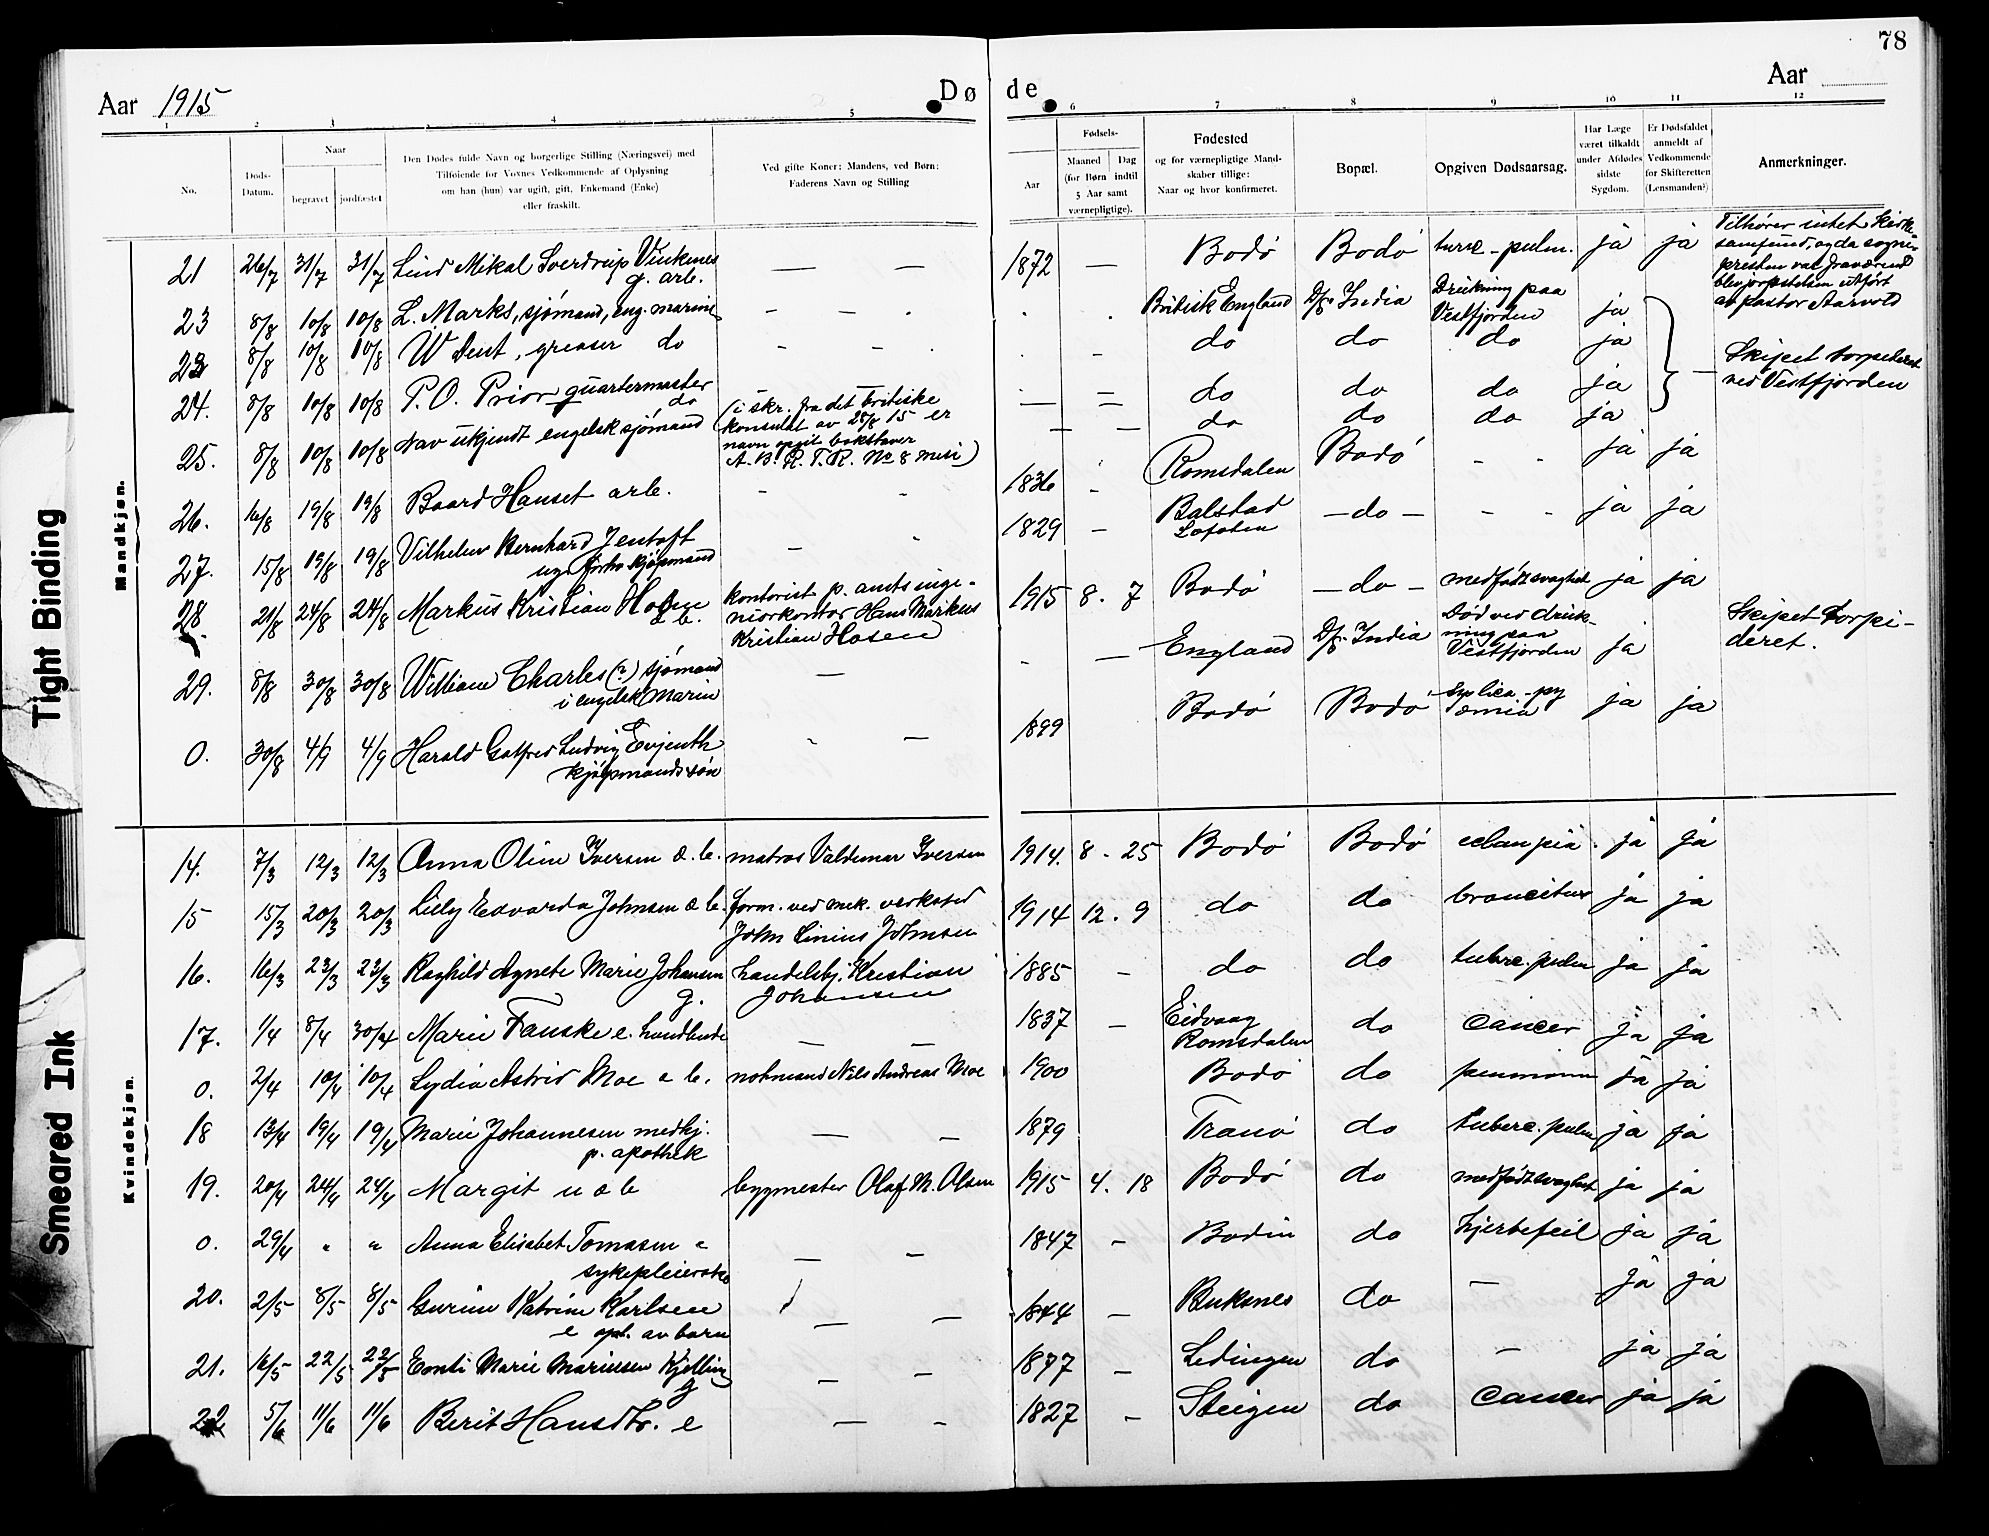 78
Aar 1915
Døde
Aar
1 2 3 4 5 6 7 8 9 10 11 12
No.
Døds-
Datum.
Naar
begravet jordfæstet
Den Dødes fulde Navn og borgerlige Stilling (Næringsvei) med
Tilføiende for Voxnes Vedkommende af Oplysning
om han (hun) var ugift, gift, Enkemand (Enke)
eller fraskilt.
Ved gifte Koner: Mandens, ved Børn:
Faderens Navn og Stilling
Fødsels-
Aar
Maaned Dag
(for Børn indtil
5 Aar samt
værnepligtige).
Fødested
og for værnepligtige Mand-
skaber tillige:
Naar og hvor konfirmeret.
Bopæl.
Opgiven Dødsaarsag.
Har Læge
været tilkaldt
under Afdødes
sidste
Sygdom.
Er Dødsfaldet
anmeldt af
Vedkommende
for Skifteretten
(Lensmanden?)
Anmerkninger.
Mandkjøn.
21 26/7 31/7 31/7 Lind Mikal Sverdrup — — 1872 — Bodø Bodø pulm. ja ja
g. arb.
Tilhører intet Kirke-
samfund, og da sogne-
presten var fraværende
blev jorpstelsen utført
av pastor Aarvold
23 8/8 10/8 10/8 L. Marks, sjømand, eng. marine - - Britisk England D/s India Drukning paa ja
Vestfjorden
23 8/8 10/8 10/8 W Dent, greaser do - - - do do do ja
24. 8/8 10/8 10/8 P. O. Prior quartermaster — — do do do ja
do
Skipet torpederet
ved Vestfjorden
25. 8/8 10/8 10/8 Nav ukjendt engelsk sjømand (i skr. fra det britiske — — do do do ja
konsulat av 28/8 15 er
navn opgit bokstaver
A. B. R. T. R. No 8 mesi)
26. 16/8 19/8 19/8 Baard Hanset arb. - - 1836 - Romsdalen Bodø - - ja ja
27. 15/8 19/8 19/8 Vilhelm Bernhard Jentoft - - 1829 - Balstad - do - - - ja ja
ug. forhv kjøpmand
Lofoten
28 21/8 24/8 24/8 Markus Kristian Hosen kontorist p. amtsinge- 1915 8. 7 Bodø - do - medfødt svaghet ja ja
d. b. niørkontor Hans Markus
Kristian Hosen
29. 8/8 30/8 30/8 William Charles (?) sjømand — - — England D/s India Død ved druk- ja
i engelsk Marin
ning paa
Vestfjorden
Skipet torpi-
deret.
0. 30/8 4/9 4/9 Harald Gotfred Ludvig Evjenth - — 1899 Bodø Bodø ja ja
kjøpmandssøn
Kvindekjøn.
14. 7/3 12/3 12/3 Anna Oline Iversen d. b. matros Valdemar Iversen 1914. 8 - 25 Bodø Bodø eclampia. ja ja
15 15/3 20/3 20/3 Lilly Edvarda Johnsen d b. form. ved mek. verksted 1914 12. 9 do do broncitus ja ja
John Linius Johnsen
16. 16/3 23/3 23/3 Raghild Agnete Marie Johansen handelsbj. Kristian 1885 - do do tuberc. pulm ja ja
g. Johansen
17. 1/4 8/4 30/4 Marie Fauske e. — — 1837 - Eidvaag do cancer ja ja
Romsdalen
0. 2/4 10/4 10/4 Lydia Astrid Moe d b. notmand Nils Andreas Moe 1900 Bodø do ja ja
18 13/4 19/4 19/4 Marie Johannesen medhj. — — 1879 Tranø do tuberc. pulm ja ja
p. apothek
19. 20/4 24/4 24/4 Margit u d b bygmester Olaf M. Olsen 1915 4. 18 Bodø do medfødt svaghet ja ja
0. 29/4 " " Anna Elisabet Tomasen — — 1847 — Bodin do hjertefeil ja ja
sykepleierske
20. 2/5 8/5 8/5 Gurine Katrine Karlsen — — 1844 — Buksnes do — ja ja
e opt. av barn
21. 16/5 22/5 22/5 Marie Mariusen Kjelling — — 1877 — Lødingen do — ja ja
g
22 5/6 11/6 11/6 Berit Hansdtr. e — — 1827 — Steigen do cancer ja ja
Tight Binding
Smeared Ink